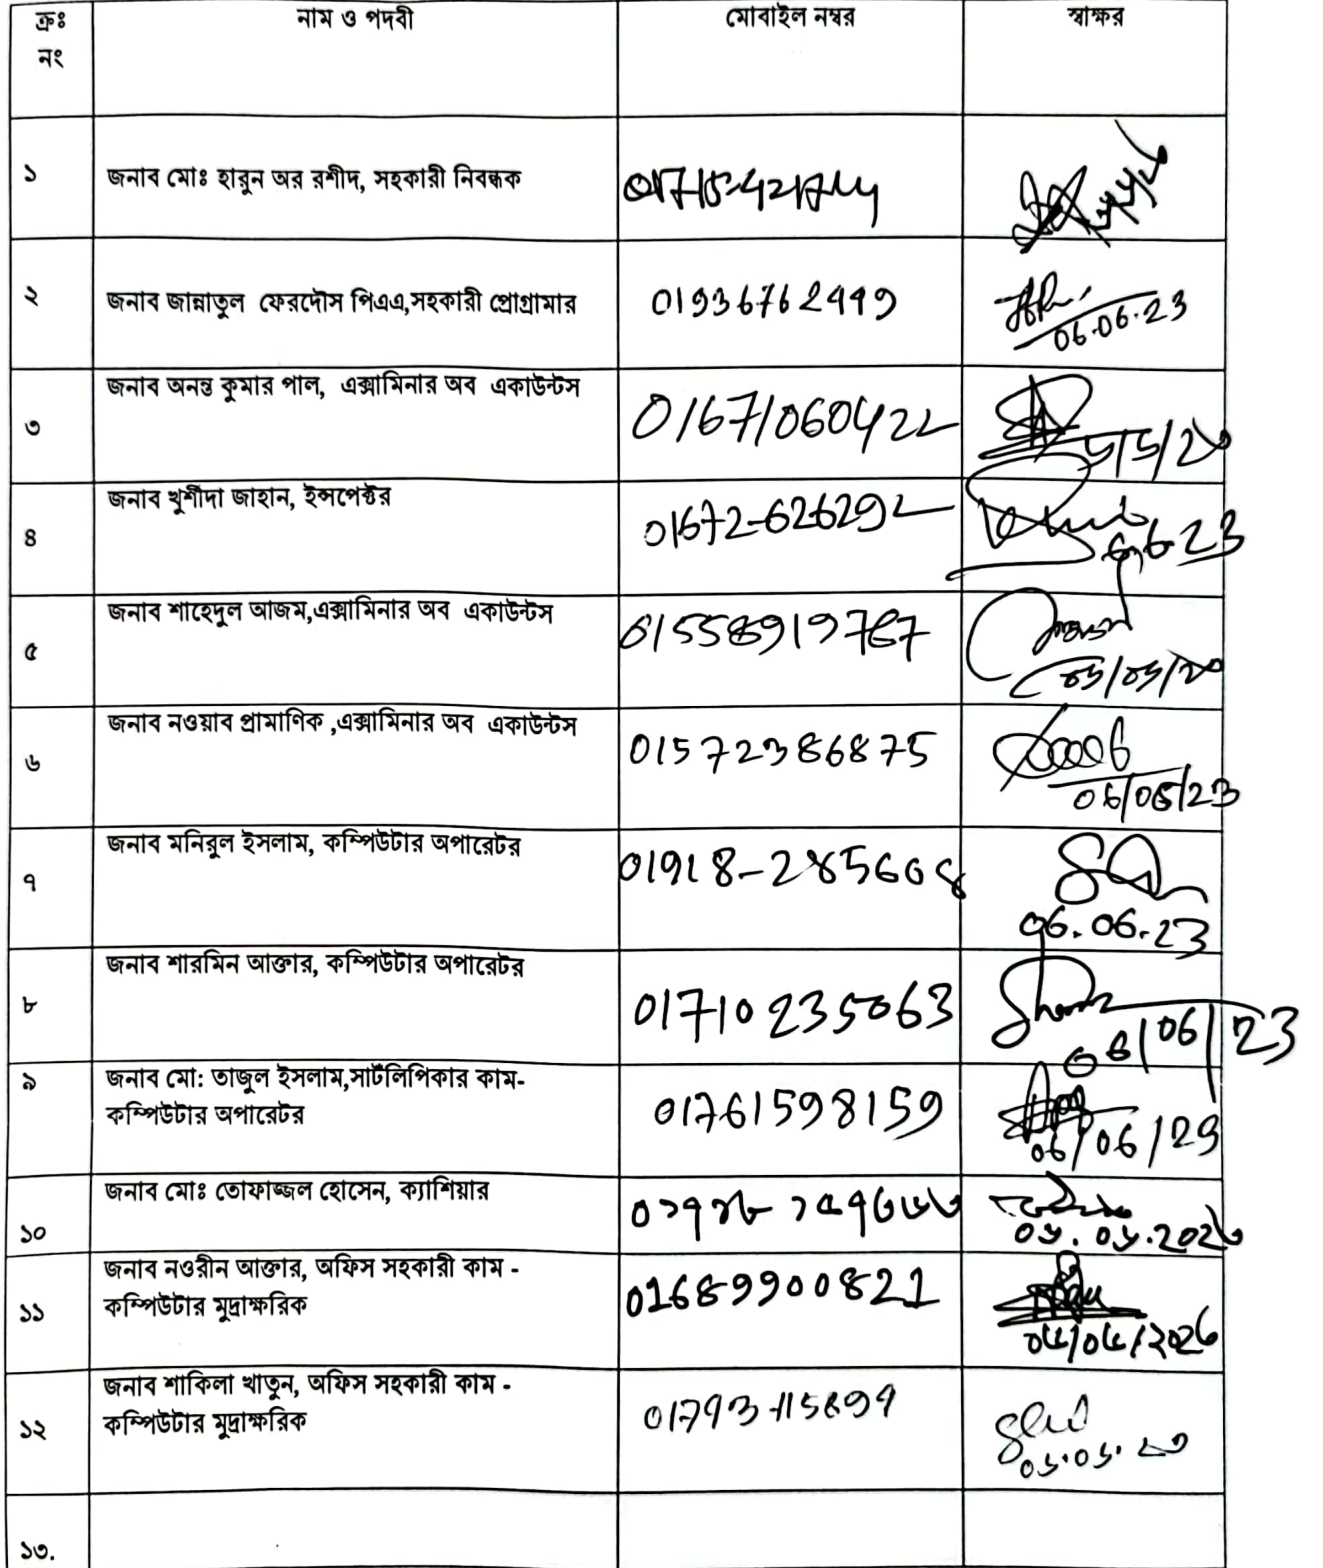 ক্রঃ নং নাম ও পদবী মোবাইল নম্বর স্বাক্ষর
১ জনাব মোঃ হারুন অর রশীদ, সহকারী নিবন্ধক
২ জনাব জান্নাতুল ফেরদৌস পিএএ,সহকারী প্রোগ্রামার 01936762449
06.06.23
৩ জনাব অনন্ত কুমার পাল, এক্সামিনার অব একাউন্টস 01671060422
৪ জনাব খুর্শীদা জাহান, ইন্সপেক্টর 01672-626292
6.6.23
৫ জনাব শাহেদুল আজম,এক্সামিনার অব একাউন্টস 01558919767
৬ জনাব নওয়াব প্রামাণিক ,এক্সামিনার অব একাউন্টস 01572386875
06/06/23
৭ জনাব মনিরুল ইসলাম, কম্পিউটার অপারেটর 01918-285608
06.06.23
৮ জনাব শারমিন আক্তার, কম্পিউটার অপারেটর 01710235063
06/06/23
৯ জনাব মো: তাজুল ইসলাম,সাটলিপিকার কাম-
কম্পিউটার অপারেটর 01761598159
06/06/23
১০ জনাব মোঃ তোফাজ্জল হোসেন, ক্যাশিয়ার
০৬.০৬.২০২৩
১১ জনাব নওরীন আক্তার, অফিস সহকারী কাম -
কম্পিউটার মুদ্রাক্ষরিক 01689900821
১২ জনাব শাকিলা খাতুন, অফিস সহকারী কাম -
কম্পিউটার মুদ্রাক্ষরিক
০৬.০৬.২৩
১৩.